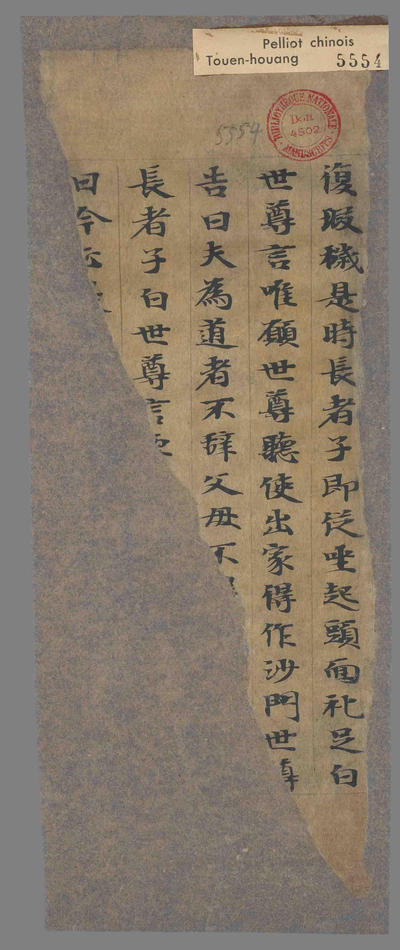 Pelliot chinois
Touen-houang 5554
BIBLIOTHÈQUE NATIONALE
Don
4502
MANUSCRITS
5554
復瑕穢是時長者子即從坐起頭面礼足白
世尊言唯願世尊聽使出家得作沙門世尊
告曰夫為道者不辞父母不
長者子白世尊言
曰今